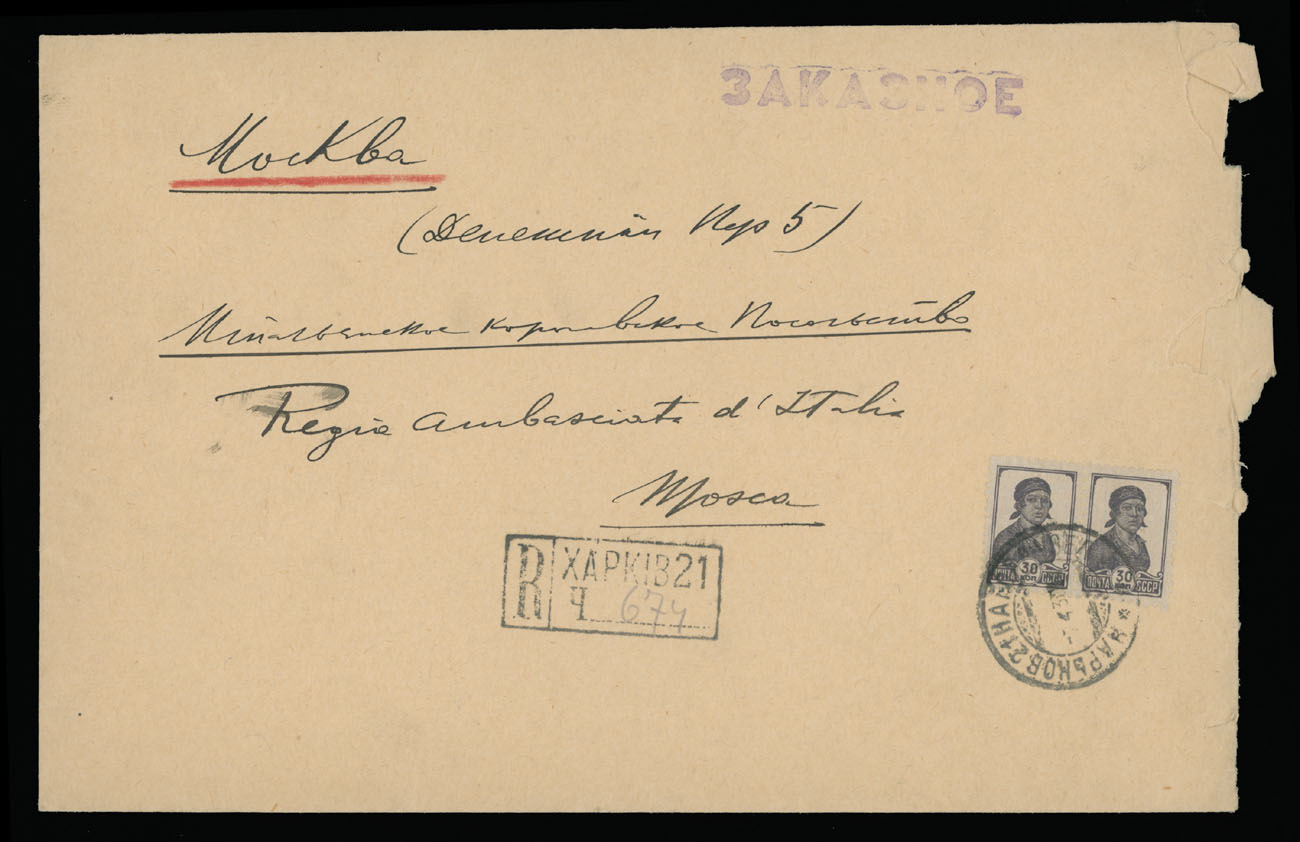 ЗАКАЗНОЕ
Москва
(Денежный Пер 5)
Итальянское королевское Посольство
Regia Ambasciata d'Italia
Mosca
R ХАРКІВ 21
Ч 674
ПОЧТА 30 КОП СССР
ПОЧТА 30 КОП СССР
ХАРЬКОВ 21